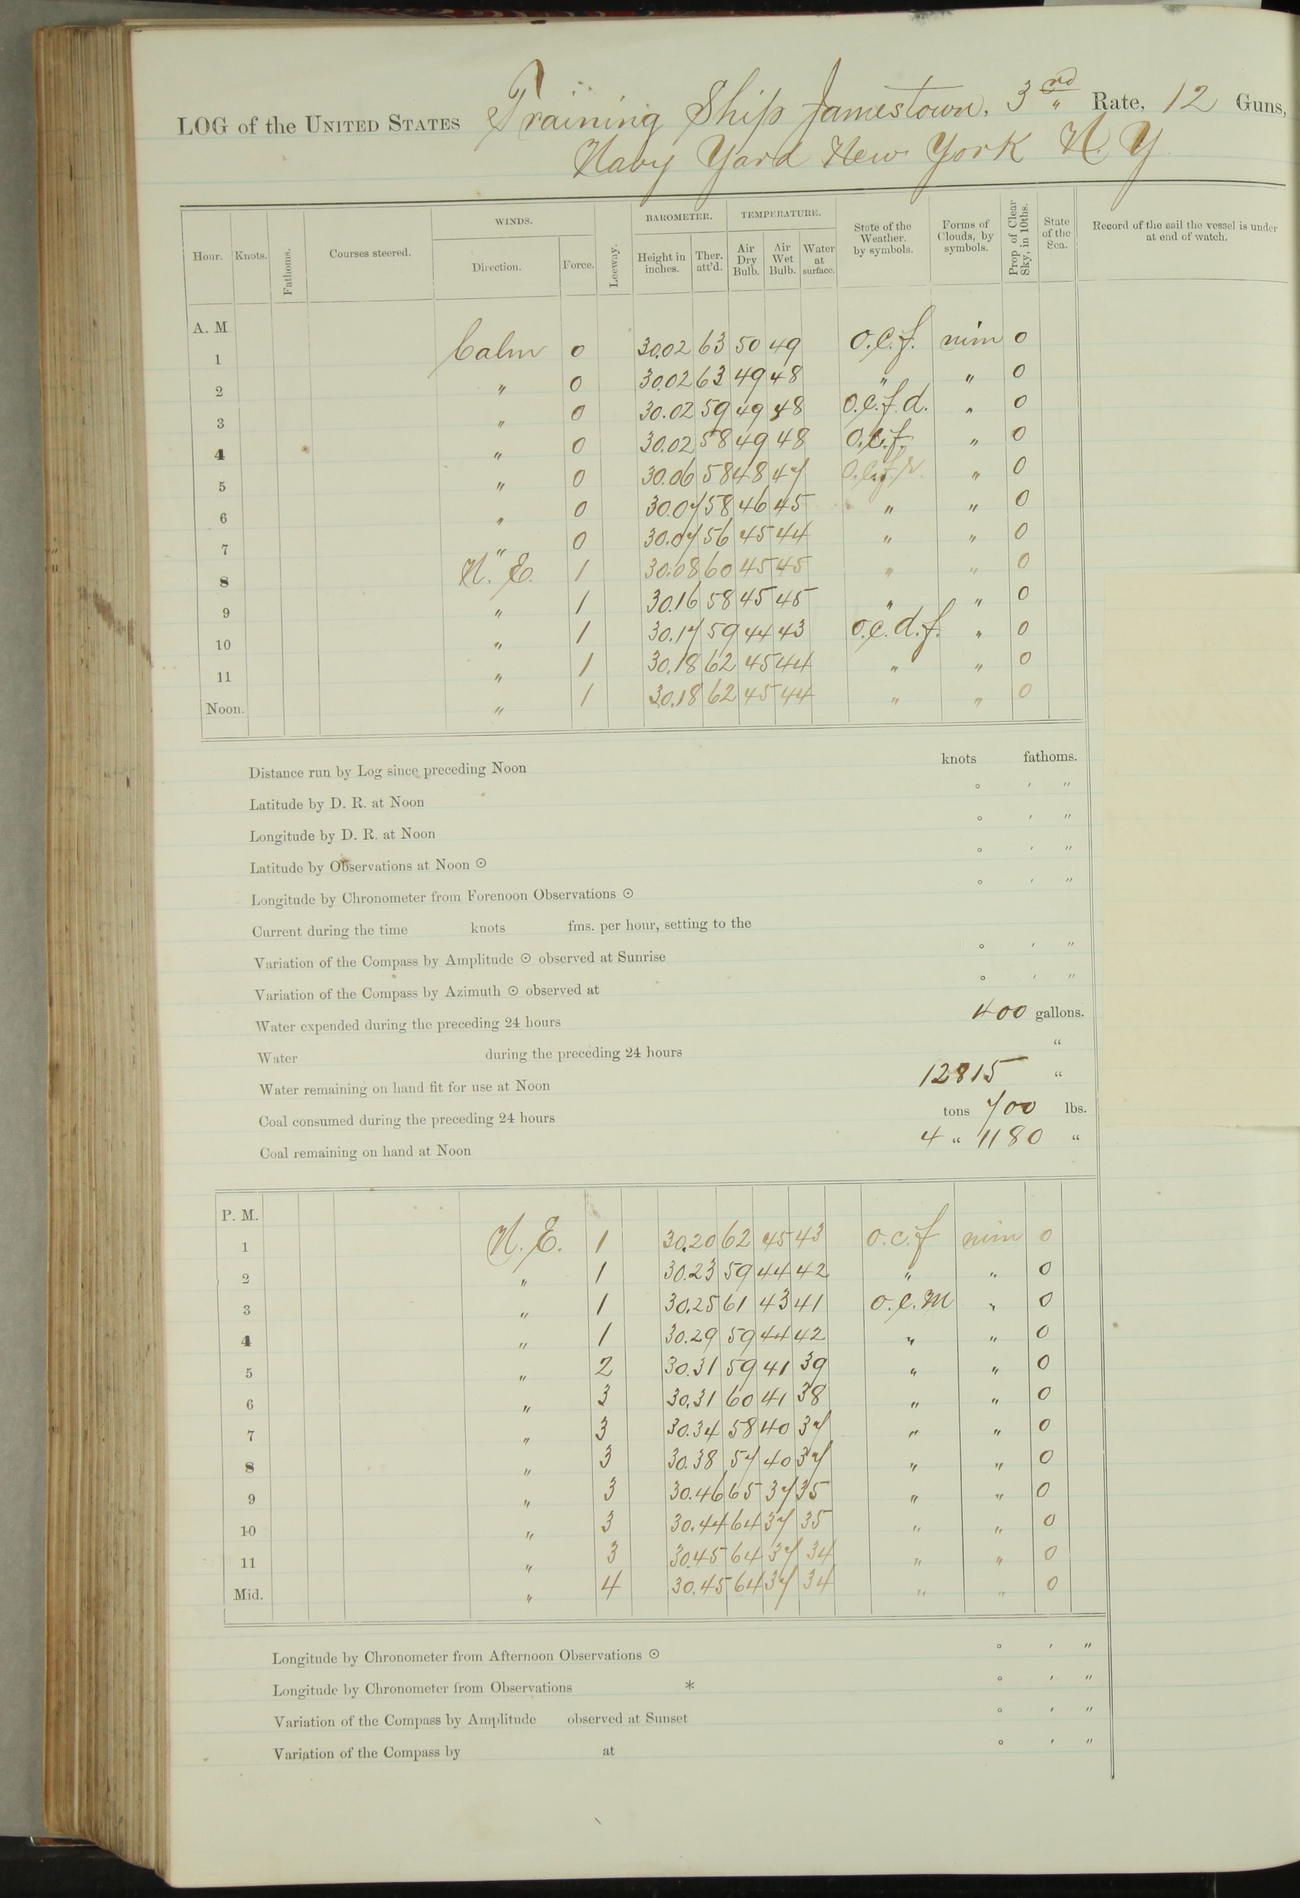 LOG of the UNITED STATES Training Ship Jamestown, 3rd Rate, 12 Guns,
Navy Yard New York N. Y
Hour. Knots. Fathoms. Courses steered. WINDS. Direction. Force. Leeway. BAROMETER. Height in inches. Ther. att'd. TEMPERATURE. Air Dry Bulb. Air Wet Bulb. Water at surface. State of the Weather. by symbols. Forms of Clouds, by symbols. Prop of Clear Sky, in 10ths. State of the Sea. Record of the sail the vessel is under at end of watch.
A. M
1 Calm 0 30.02 63 50 49 o.c.f. nim 0
2 " 0 30.02 63 49 48 " " 0
3 " 0 30.02 59 49 48 o.c.f.d. " 0
4 " 0 30.02 58 49 48 o.c.f. " 0
5 " 0 30.06 58 48 47 " 0
6 " 0 30.07 58 46 45 " " 0
7 " 0 30.07 56 45 44 " " 0
8 N. E. 1 30.08 60 45 45 " " 0
9 " 1 30.16 58 45 45 " " 0
10 " 1 30.17 59 44 43 o.c.d.f. " 0
11 " 1 30.18 62 45 44 " " 0
Noon. " 1 30.18 62 45 44 " " 0
Distance run by Log since preceding Noon knots fathoms.
Latitude by D. R. at Noon ° ′ ″
Longitude by D. R. at Noon ° ′ ″
Latitude by Observations at Noon ☉ ° ′ ″
Longitude by Chronometer from Forenoon Observations ☉ ° ′ ″
Current during the time knots fms. per hour, setting to the
Variation of the Compass by Amplitude ☉ observed at Sunrise ° ′ ″
Variation of the Compass by Azimuth ☉ observed at ° ′ ″
Water expended during the preceding 24 hours 400 gallons.
Water during the preceding 24 hours "
Water remaining on hand fit for use at Noon 12815 "
Coal consumed during the preceding 24 hours tons 700 lbs.
Coal remaining on hand at Noon 4 " 1180 "
P. M.
1 N. E. 1 30.20 62 45 43 o.c.f nim 0
2 " 1 30.23 59 44 42 " " 0
3 " 1 30.25 61 43 41 o.c.m " 0
4 " 1 30.29 59 44 42 " " 0
5 " 2 30.31 59 41 39 " " 0
6 " 3 30.31 60 41 38 " " 0
7 " 3 30.34 58 40 37 " " 0
8 " 3 30.38 57 40 37 " " 0
9 " 3 30.46 65 37 35 " " 0
10 " 3 30.44 64 37 35 " " 0
11 " 3 30.45 64 37 34 " " 0
Mid. " 4 30.45 64 37 34 " " 0
Longitude by Chronometer from Afternoon Observations ☉ ° ′ ″
Longitude by Chronometer from Observations * ° ′ ″
Variation of the Compass by Amplitude observed at Sunset ° ′ ″
Variation of the Compass by at ° ′ ″